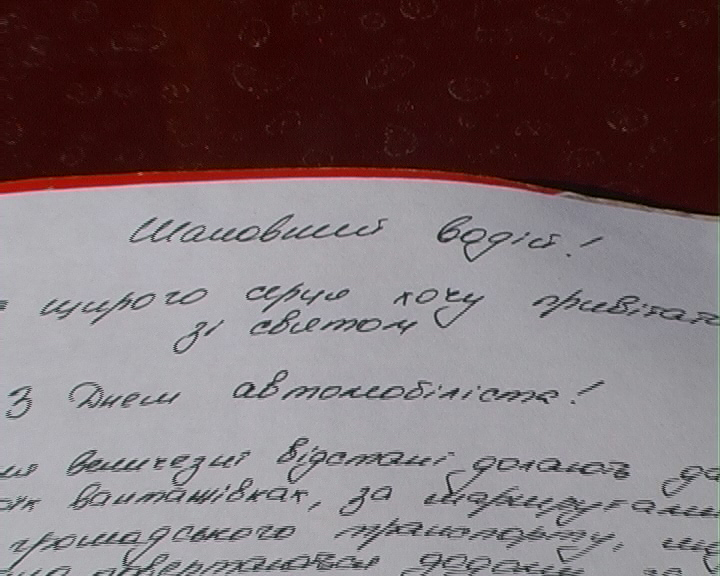 Шановний водій!
щирого серця хочу привітати
зі святом
З Днем автомобіліста!
величезні відстані долають
вантажівках, за маршрутами
громадського транспорту,